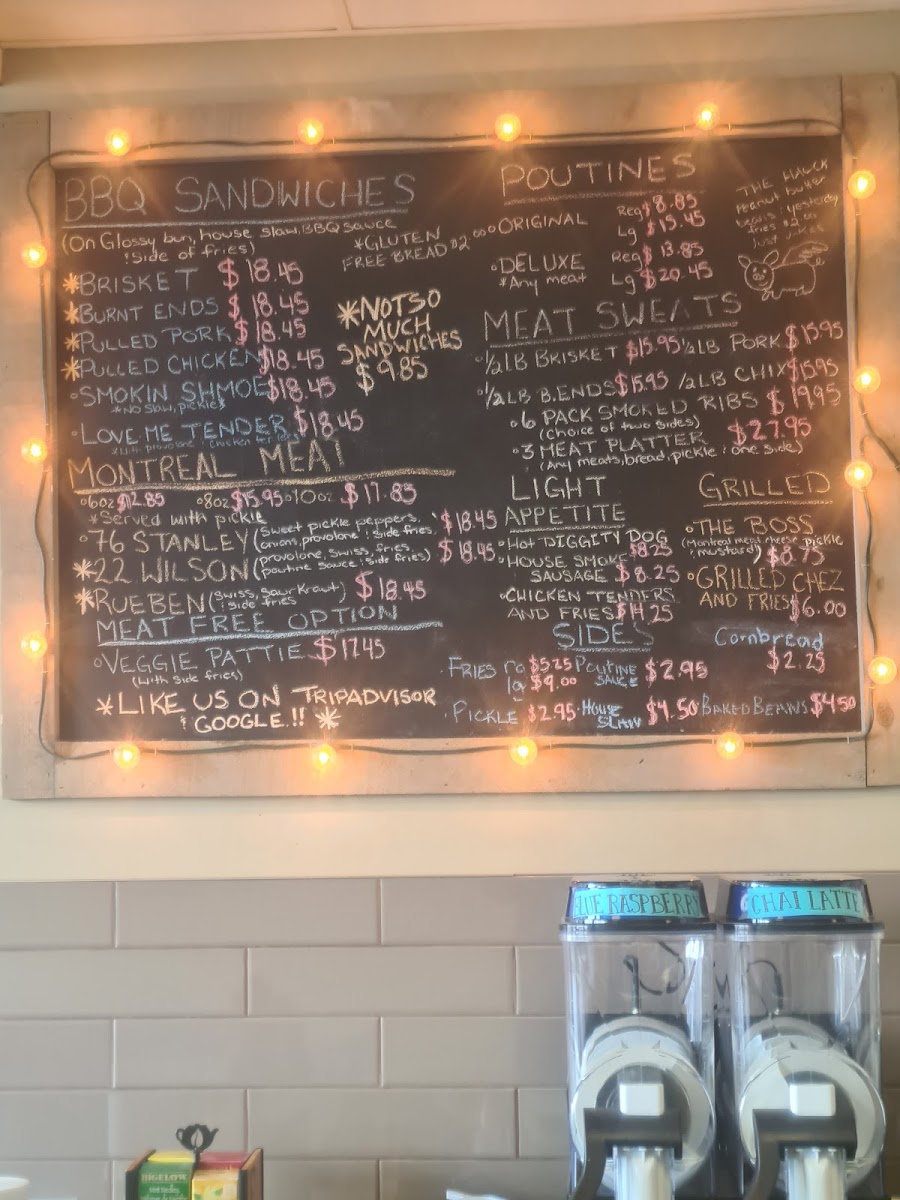 BBQ SANDWICHES
(On Glossy bun, house slaw, BBQ sauce
: Side of fries)
*GLUTEN
FREE BREAD $2.00
*BRISKET $18.45
*BURNT ENDS $18.45
*PULLED PORK $18.45
*PULLED CHICKEN $18.45
SMOKIN SHMOE $18.45
*No slaw, pickles
LOVE ME TENDER $18.45
*NOT SO
MUCH
SANDWICHES
$9.85
MONTREAL MEAT
6oz $12.85 8oz $15.95 10oz $17.85
*Served with pickle
76 STANLEY (Sweet pickle peppers, onions, provolone : Side fries) $18.45
*22 WILSON (provolone, swiss, fries, poutine sauce : Side fries) $18.45
*RUEBEN (Swiss, Saurkraut) : Side fries $18.45
MEAT FREE OPTION
VEGGIE PATTIE $17.45
(with side fries)
*LIKE US ON TRIPADVISOR
: GOOGLE.!! *
POUTINES
ORIGINAL Reg $8.85
Lg $15.45
DELUXE Reg $13.85
*Any meat Lg $20.45
THE HAWK
Peanut butter
yesterday
fries $2.00
Just Jokes
MEAT SWEATS
1/2LB BRISKET $15.95 1/2LB PORK $15.95
1/2LB B.ENDS $15.95 1/2LB CHIX $15.95
6 PACK SMOKED RIBS $19.95
(Choice of two sides)
3 MEAT PLATTER $27.95
(Any meats, bread, pickle : one side)
LIGHT
APPETITE
HOT DIGGITY DOG
$8.25
HOUSE SMOKE
SAUSAGE $8.25
CHICKEN TENDERS
AND FRIES $14.25
GRILLED
THE BOSS
(Montreal meat, cheese, pickle
: mustard) $8.75
GRILLED CHEZ
AND FRIES $6.00
SIDES
Cornbread
$2.25
FRIES rg $5.25 POUTINE SAUCE $2.95
lg $9.00
PICKLE $2.95 HOUSE SLAW $4.50 BAKED BEANS $4.50
BLUE RASPBERRY
CHAI LATTE
BIGELOW